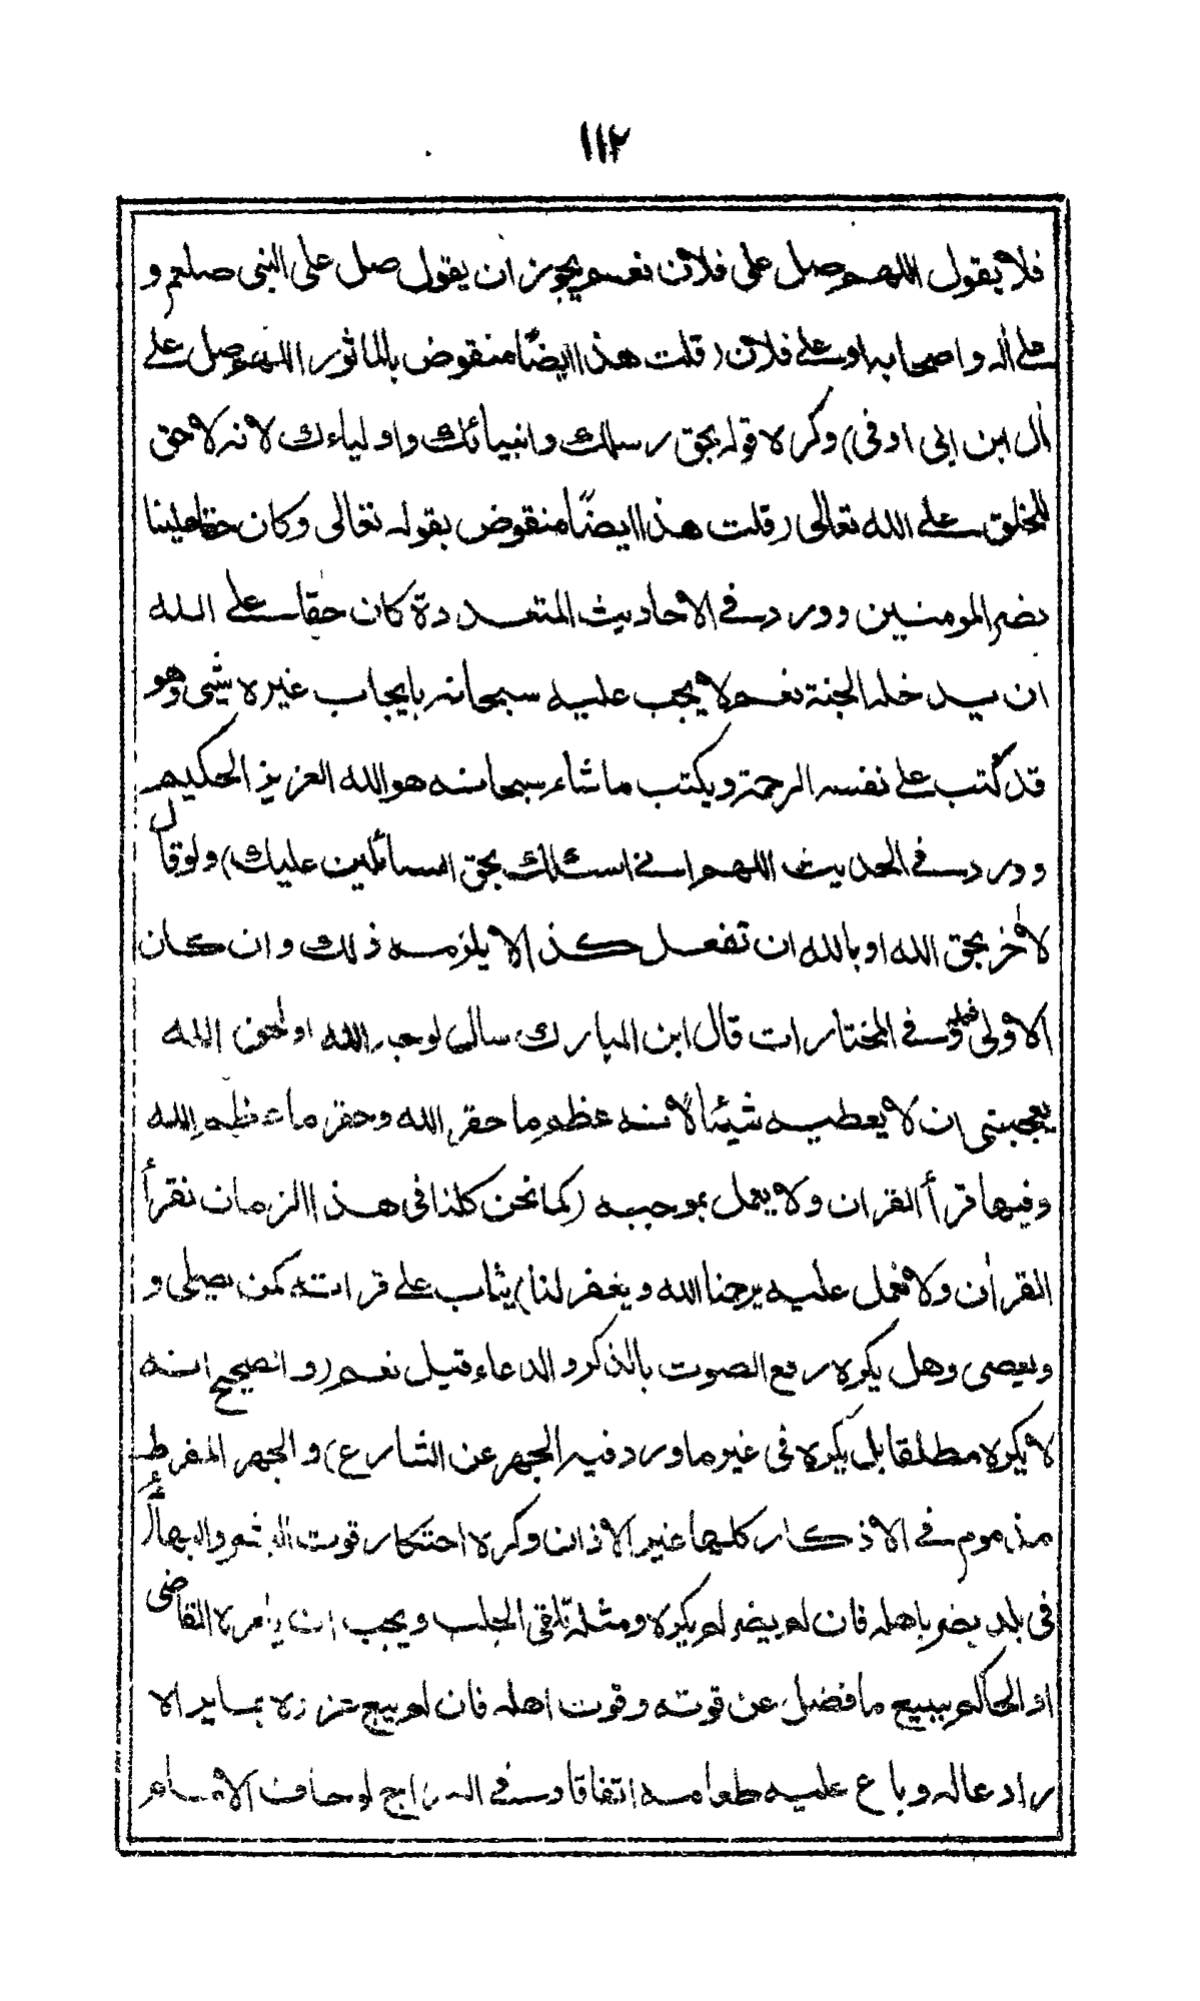 ١١٢
فلا يقول اللهم صل على فلان نعم يجوز ان يقول صل على النبى صلعم و
على اٰله واصحابه او على فلان (قلت هذا ايضًا منقوض بالماثور اللهم صل على
اٰل ابن ابى اوفى) وكره قوله بحق رسلك وانبيائك واوليائك لانه لا حق
للخلق على الله تعالى (قلت هذا ايضًا منقوض بقوله تعالى وكان حقا علينا
نصر المومنين وورد فى الاحاديث المتعددة كان حقا على الله
ان يدخله الجنة نعم لا يجب عليه سبحانه بايجاب غيره شىء وهو
قد كتب على نفسه الرحمة ويكتب ما شاء سبحانه هو الله العزيز الحكيم
وورد فى الحديث اللهم انى اسئلك بحق السائلين عليك) ولو قال
لاٰخر بحق الله او بالله ان تفعل كذا لا يلزمه ذلك وان كان
الاولى فعله وفى المختارات قال ابن المبارك سال لوجه الله او لحق الله
يعجبنى ان لا يعطيه شيئا لانه عظم ما حقر الله وحقر ما عظم الله
وفيها قرأ القران ولا يعمل بموجبه (كما نحن كلنا فى هذا الزمان نقرأ
القراٰن ولا نعمل عليه يرحمنا الله ويغفر لنا) يثاب على قراته كمن يصلى و
ويعصى وهل يكره رفع الصوت بالذكر والدعاء قيل نعم (والصحيح انه
لا يكره مطلقا بل يكره فى غير ما ورد فيه الجهر عن الشارع) والجهر المفرط
مذموم فى الاذكار كلها غير الاذان وكره احتكار قوت البشر والبهائم
فى بلد يضر باهله فان لم يضر لم يكره ومثله تلقى الجلب ويجب ان يامره القاضى
او الحاكم ببيع ما فضل عن قوته وقوت اهله فان لم يبع عزره بما يراه
رادعا له وباع عليه طعامه اتفاقا وفى السراج لو خاف الامام